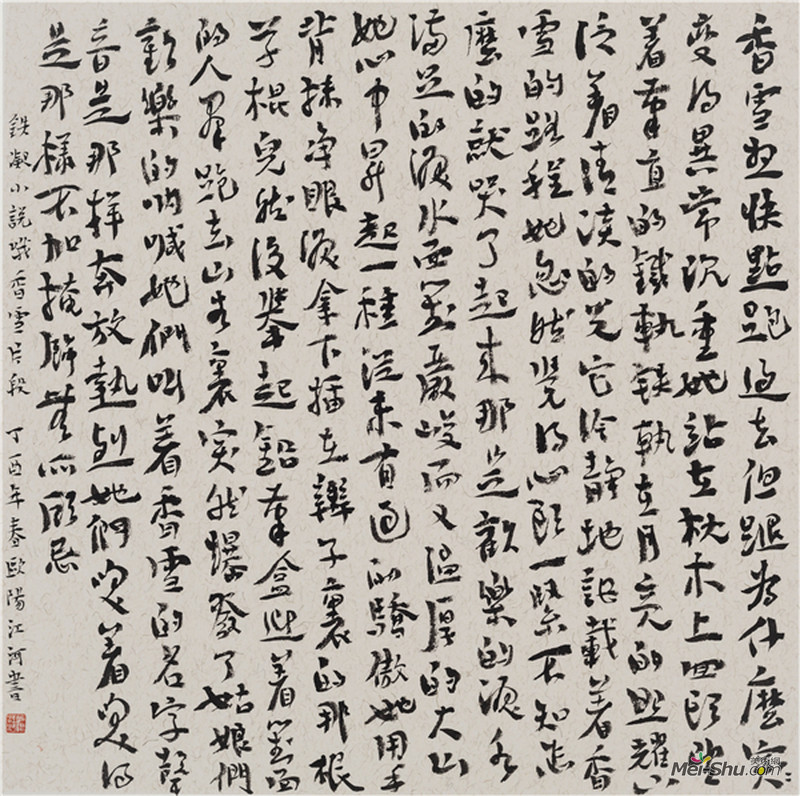 香雪想快點跑過去但腿為什麼突
變得異常沉重她站在枕木上回頭望
着筆直的鐵軌鐵軌在月亮的照耀下
泛着清淡的光它冷靜地記載着香
雪的路程她忽然覺得心頭一緊不知怎
麼的就哭了起來那是歡樂的淚水
滿足的淚水面對嚴峻而又溫厚的大山
她心中昇起一種從未有過的驕傲她用手
背抹净眼淚拿下插在辮子裏的那根
草棍兒然後舉起鉛筆盒迎着對面
的人羣跑去山谷裏突然爆發了姑娘們
歡樂的吶喊她們叫着香雪的名字聲
音是那样奔放熱烈她們笑着笑得
是那樣不加掩飾無所顧忌
鉄凝小說哦香雪片段 丁酉年春歐陽江河書
美术網
Mei-Shu.com